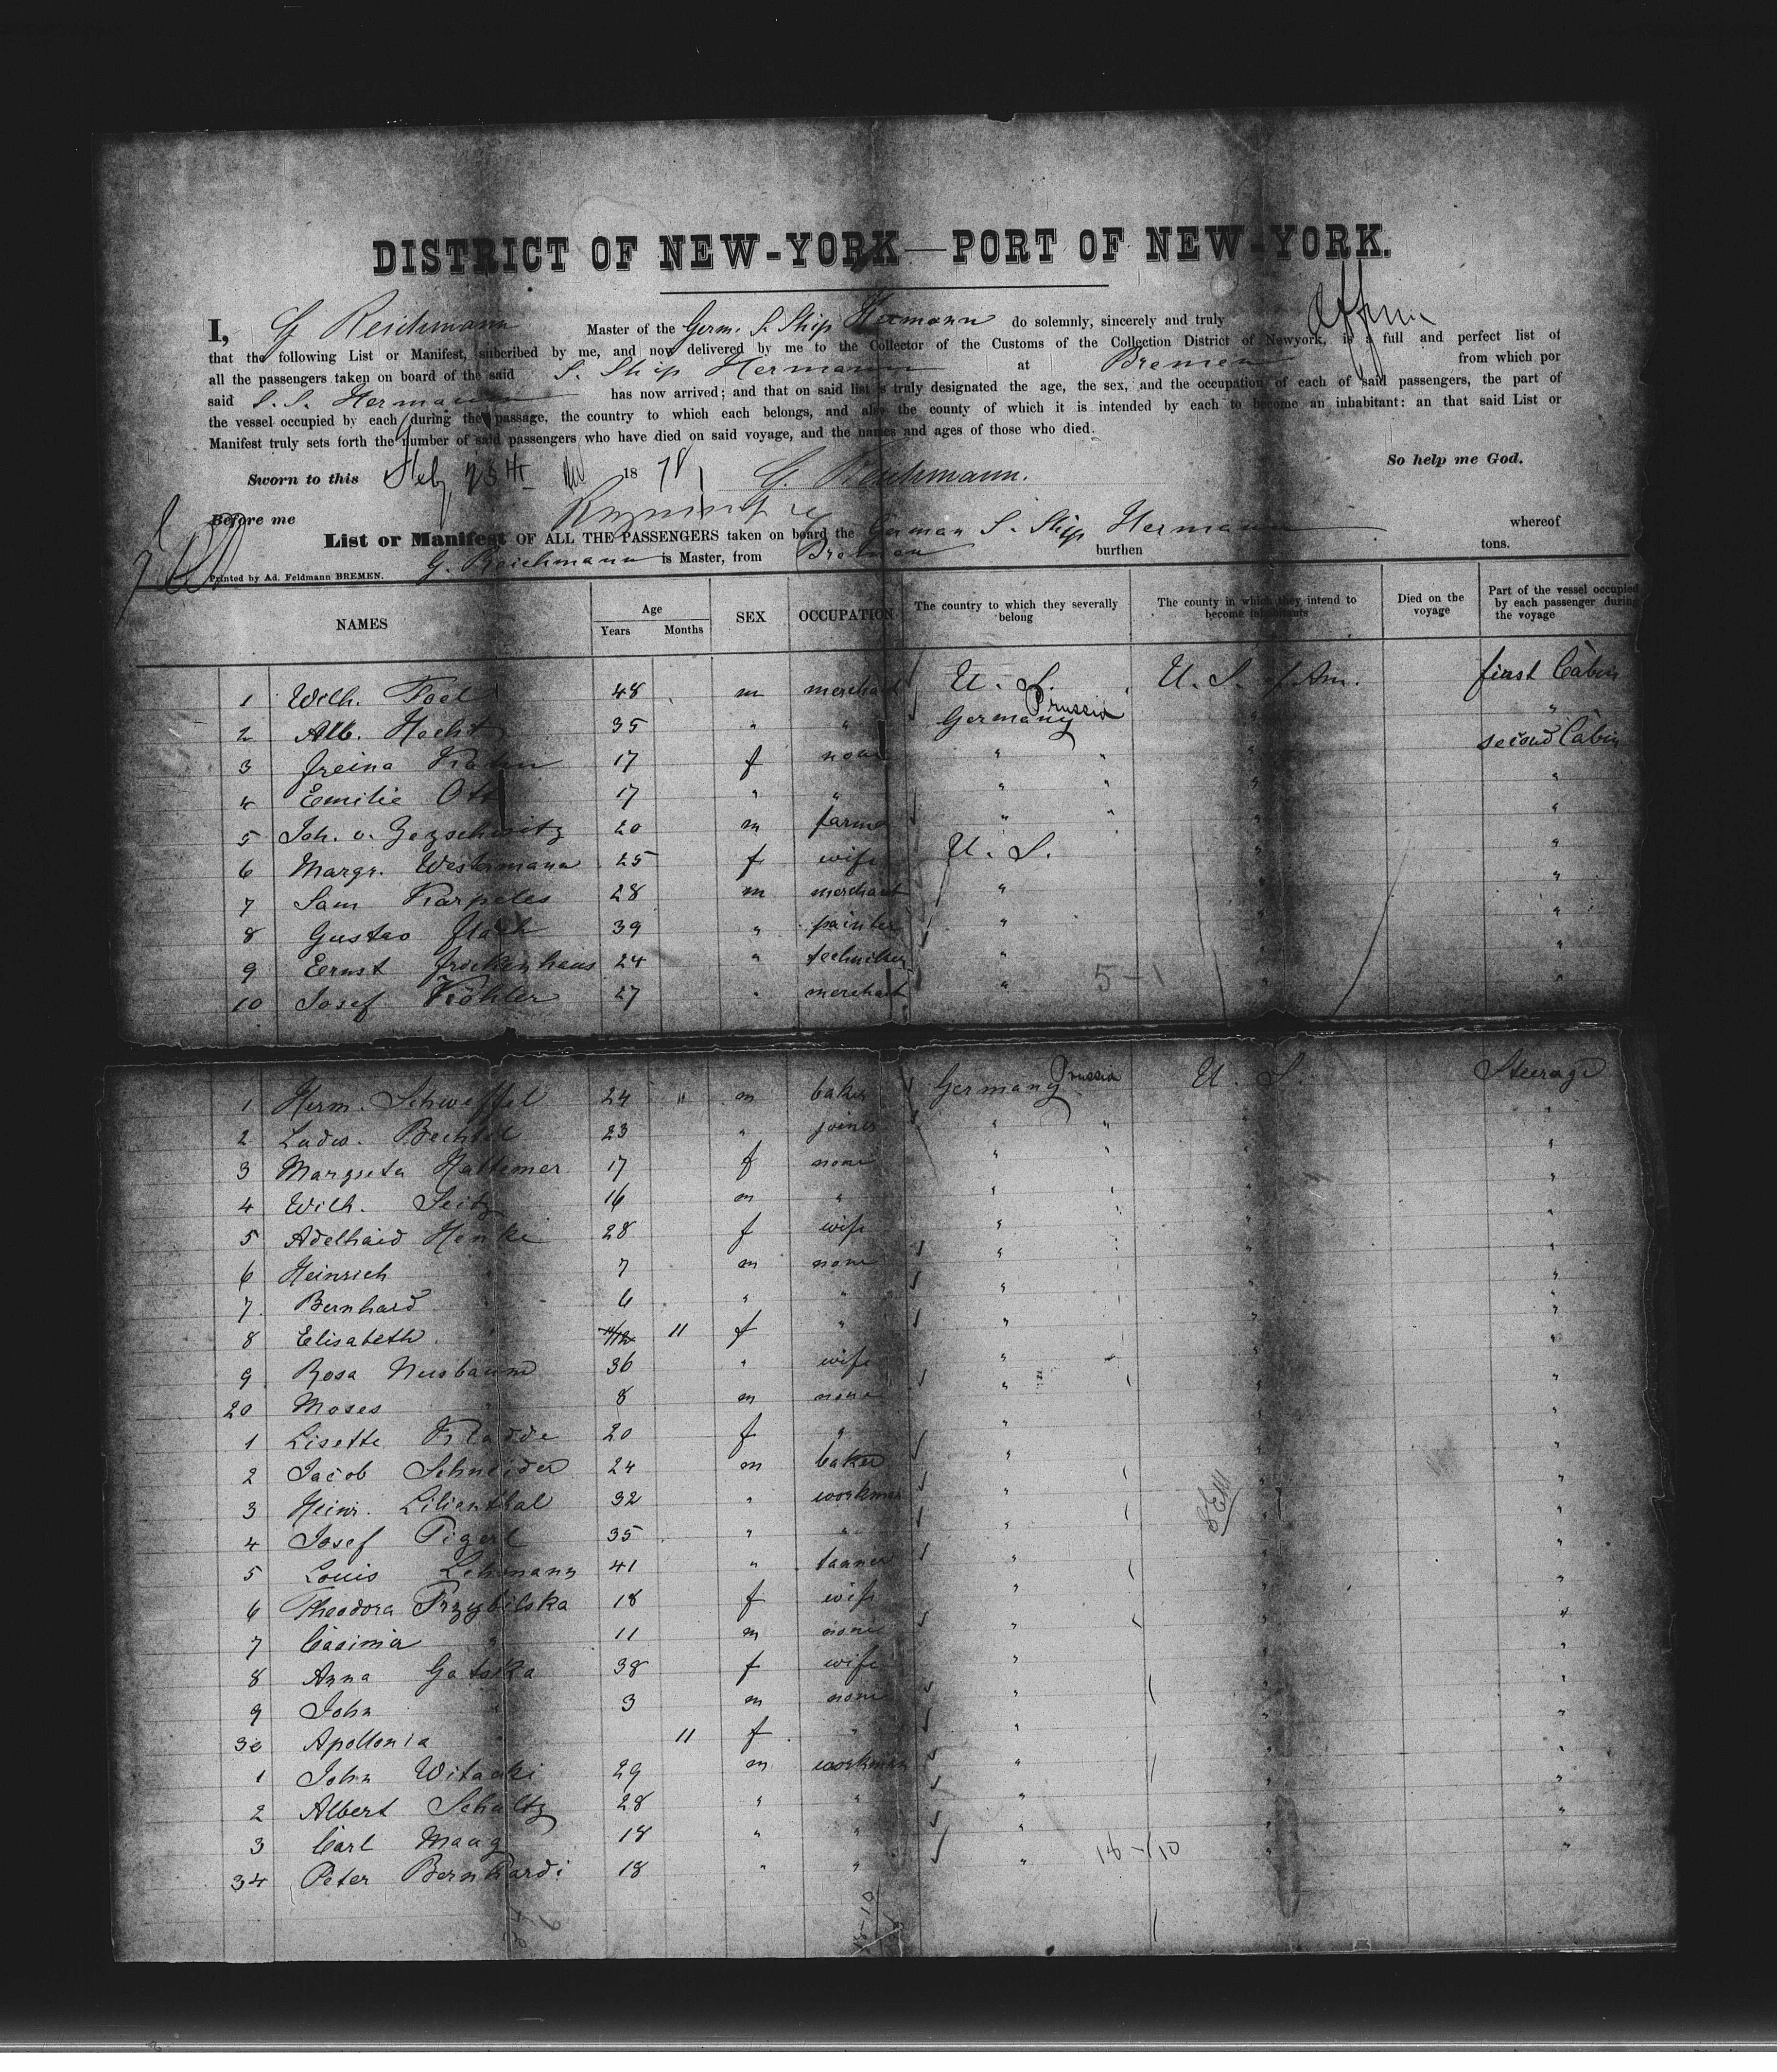 DISTRICT OF NEW-YORK—PORT OF NEW-YORK.
I, G Reichmann Master of the Germ. S. Ship Hermann do solemnly, sincerely and truly affirm
that the following List or Manifest, subcribed by me, and now delivered by me to the Collector of the Customs of the Collection District of Newyork, is a full and perfect list of
all the passengers taken on board of the said S. Ship Hermann at Bremen from which por
said S. S. Hermann has now arrived; and that on said list is truly designated the age, the sex, and the occupation of each of said passengers, the part of
the vessel occupied by each during the passage, the country to which each belongs, and also the county of which it is intended by each to become an inhabitant: an that said List or
Manifest truly sets forth the number of said passengers who have died on said voyage, and the names and ages of those who died.
So help me God.
Sworn to this Feb 25th 1878 G. Reichmann.
Before me
List or Manifest OF ALL THE PASSENGERS taken on board the German S. Ship Hermann whereof
G. Reichmann is Master, from Bremen burthen tons.
Printed by Ad. Feldmann BREMEN.
NAMES Age Years Months SEX OCCUPATION The country to which they severally belong The county in which they intend to become inhabitants Died on the voyage Part of the vessel occupied by each passenger during the voyage
1 Wilh. 48 m merchant U. S. U. S. of Am. first Cabin
2 Alb. Hecht 35 " " Germany Prussia " "
3 Kahn 17 f none " " " second Cabin
4 Emilie Ott 17 " " " " " "
5 Joh. v. Gezschwitz 20 m farmer " " " "
6 Margr. Westermann 25 f wife U. S. " "
7 Sam Karpeles 28 m merchant " " "
8 Gustav 39 " painter " " "
9 Eernst Frickenhaus 24 " techniker " " "
10 Josef Köhler 27 " merchant " 5-1 " "
1 Herm. Schweffel 24 " m baker Germany Prussia U. S. Steerage
2 Ludw. Bechtel 23 " joiner " " " "
3 Margreta Hattemer 17 f none " " " "
4 Wilh. Seitz 16 m " " " " "
5 Adelhaid Henke 28 f wife " " " "
6 Heinrich " 7 m none " " "
7 Bernhard " 6 " " " " "
8 Elisabeth " 11/12 11 f " " " "
9 Rosa Nusbaum 36 " wife " " "
20 Moses " 8 m none " " "
1 Lisette Kladde 20 f " " " "
2 Jacob Schneider 24 m baker " " "
3 Heinr. Lilienthal 32 " workman " " "
4 Josef Pigerl 35 " " " " "
5 Louis Lehmann 41 " tanner " " "
6 Theodora Przybilska 18 f wife " " "
7 Casimir " 11 m none " " "
8 Anna Gatska 38 f wife " " "
9 John " 3 m none " " "
30 Apollonia " 11 f " " " "
1 John Witacki 29 m workman " " "
2 Albert Schultz 28 " " " " "
3 Carl Maag 18 " " " " "
34 Peter Bernhardi 18 " " " 14-10 " "